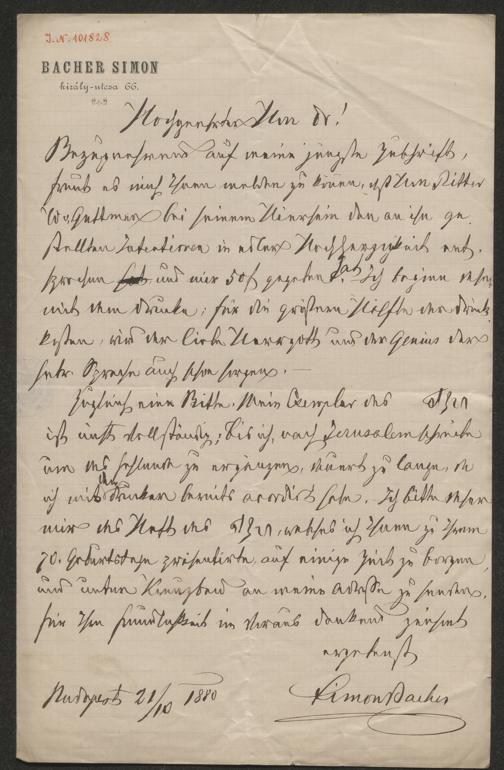 J.N. 101828
BACHER SIMON
király-utcza 66.
Hochgeehrter Herr Dr!
Bezugnehmend auf meine jüngste Zuschrift,
freut es mich Ihnen melden zu können, daß Herr Ritter
W. v. Guttmann bei seinem Hiersein den an ihn ge-
stellten Intentionen in edler Hochherzigkeit ent-
sprochen und mir 50 f gegeben hat. Ich beginne daher
mit dem Drucke; für die größere Hälfte der Druck-
kosten, wird der liebe Herrgott und der Genius der
hebr. Sprache auch schon sorgen. —
Zugleich eine Bitte. Mein Exemplar des
ist nicht vollständig; bis ich, nach Jerusalem schreibe
um das Fehlende zu ergänzen, dauert zu lange, da
ich mit dem Drucker bereits accordirt habe. Ich bitte daher
mir das Heft des welches ich Ihnen zu Ihrem
70. Geburtstage präsentirte, auf einige Zeit zu borgen,
und unter Kreuzband an meine Adresse zu senden.
Für Ihre Freundlichkeit im Voraus dankend zeichnet
ergebenst
Budapest 21/10 1880 Simon Bacher